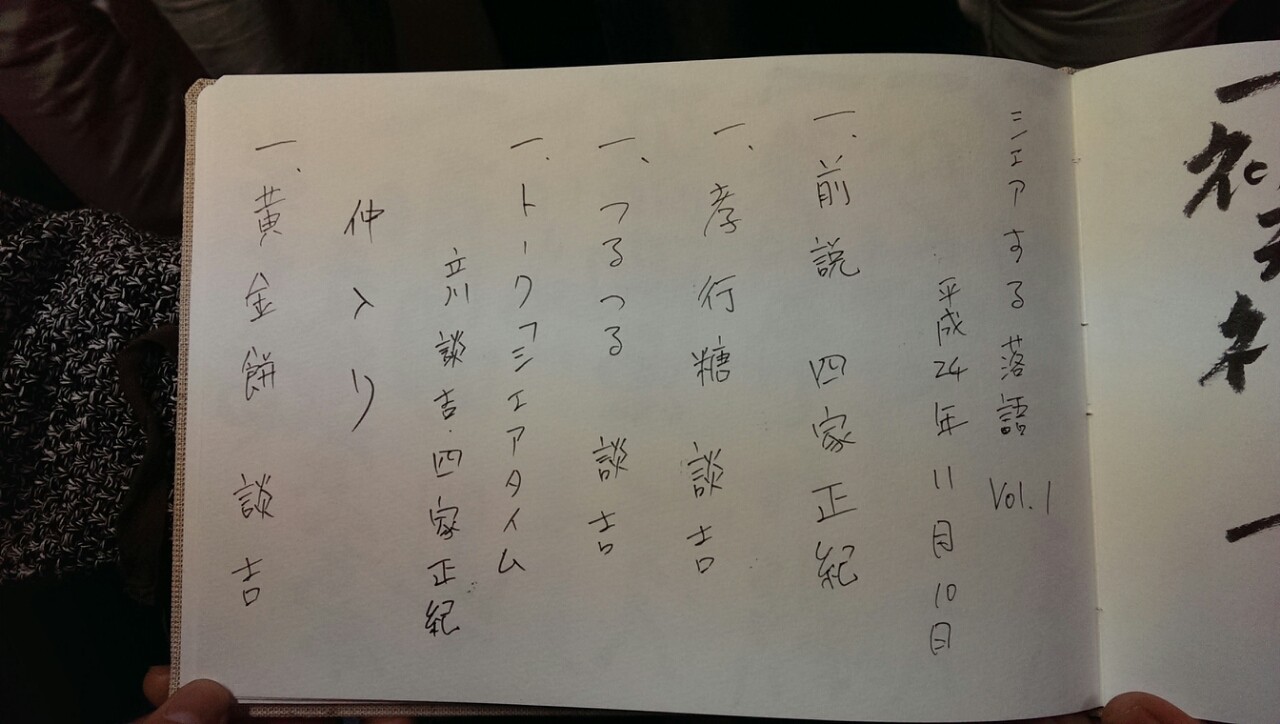 シェアする落語 Vol.1
平成24年11月10日
一、前説 四家正紀
一、孝行糖 談吉
一、つるつる 談吉
一、トーク「シェアタイム
立川談吉・四家正紀
仲入り
一、黄金餅 談吉